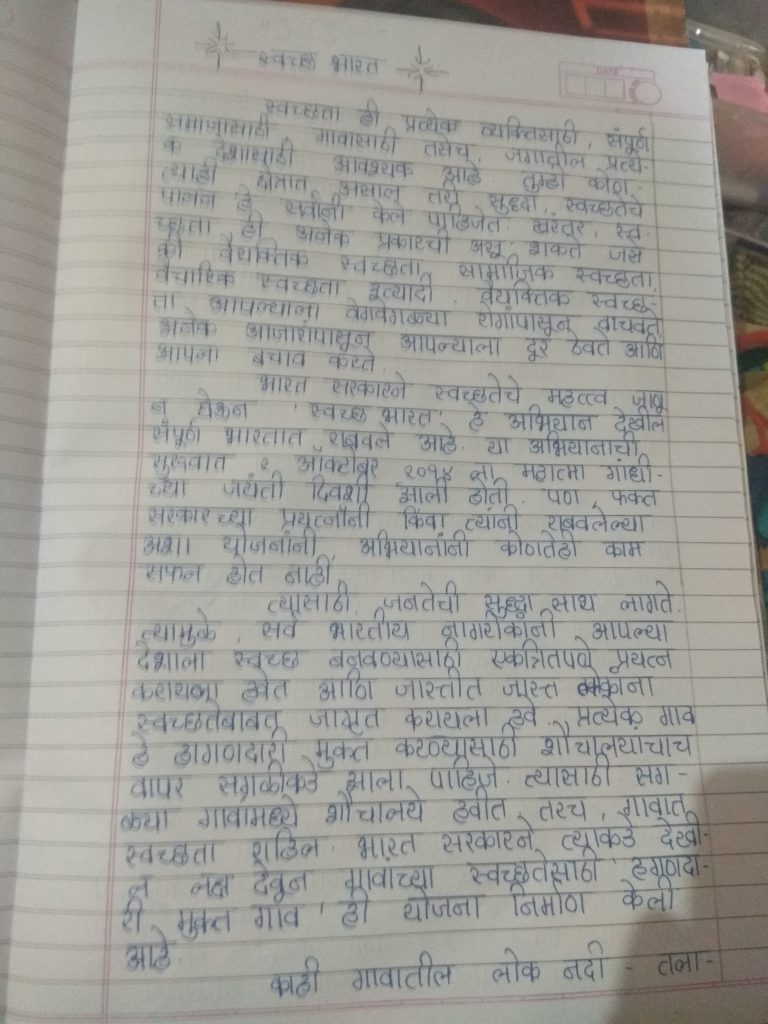 स्वच्छ भारत
DATE
स्वच्छता ही प्रत्येक व्यक्तिसाठी, संपूर्ण
समाजासाठी गावासाठी तसेच, जगातील प्रत्ये-
क देशासाठी आवश्यक आहे. तुम्ही कोण-
त्याही क्षेत्रात असाल तरी सुध्दा, स्वच्छतेचे
पालन हे सर्वांनी केले पाहिजेत. खरतर, स्व-
च्छता ही अनेक प्रकारची असू शकते जसे
की वैयक्तिक स्वच्छता, सामाजिक स्वच्छता,
वैचारिक स्वच्छता इत्यादी. वैयक्तिक स्वच्छ-
ता आपल्याला वेगवेगळ्या रोगापासून वाचवते,
अनेक आजारांपासून आपल्याला दूर ठेवते आणि
आपला बचाव करते.
भारत सरकारने स्वच्छतेचे महत्त्व जाणू
न घेऊन 'स्वच्छ भारत' हे अभियान देखील
संपूर्ण भारतात राबवले आहे. या अभियानाची
सुरूवात २ ऑक्टोबर २०१४ ला महात्मा गांधी-
च्या जयंती दिवशी झाली होती. पण, फक्त
सरकारच्या प्रयत्नांनी किंवा त्यांनी राबवलेल्या
अशा योजनांनी, अभियानांनी कोणतेही काम
सफल होत नाही.
त्यासाठी, जनतेची सुध्दा साथ लागते.
त्यामुळे, सर्व भारतीय नागरीकांनी आपल्या
देशाला स्वच्छ बनवण्यासाठी एकत्रितपणे प्रयत्न
करायला हवेत आणि जास्तीत जास्त लोकांना
स्वच्छतेबाबत जागृत करायला हवे. प्रत्येक गाव
हे हागणदारी मुक्त करण्यासाठी शौचालयाचाच
वापर सगळीकडे झाला पाहिजे. त्यासाठी सग-
ळ्या गावामध्ये शौचालये हवीत. तरच, गावात
स्वच्छता राहिल. भारत सरकारने त्याकडे देखी-
ल लक्ष देवून गावाच्या स्वच्छतेसाठी 'हगणदा-
री मुक्त गाव' ही योजना निर्माण केली
आहे.
काही गावातील लोक नदी - तला-